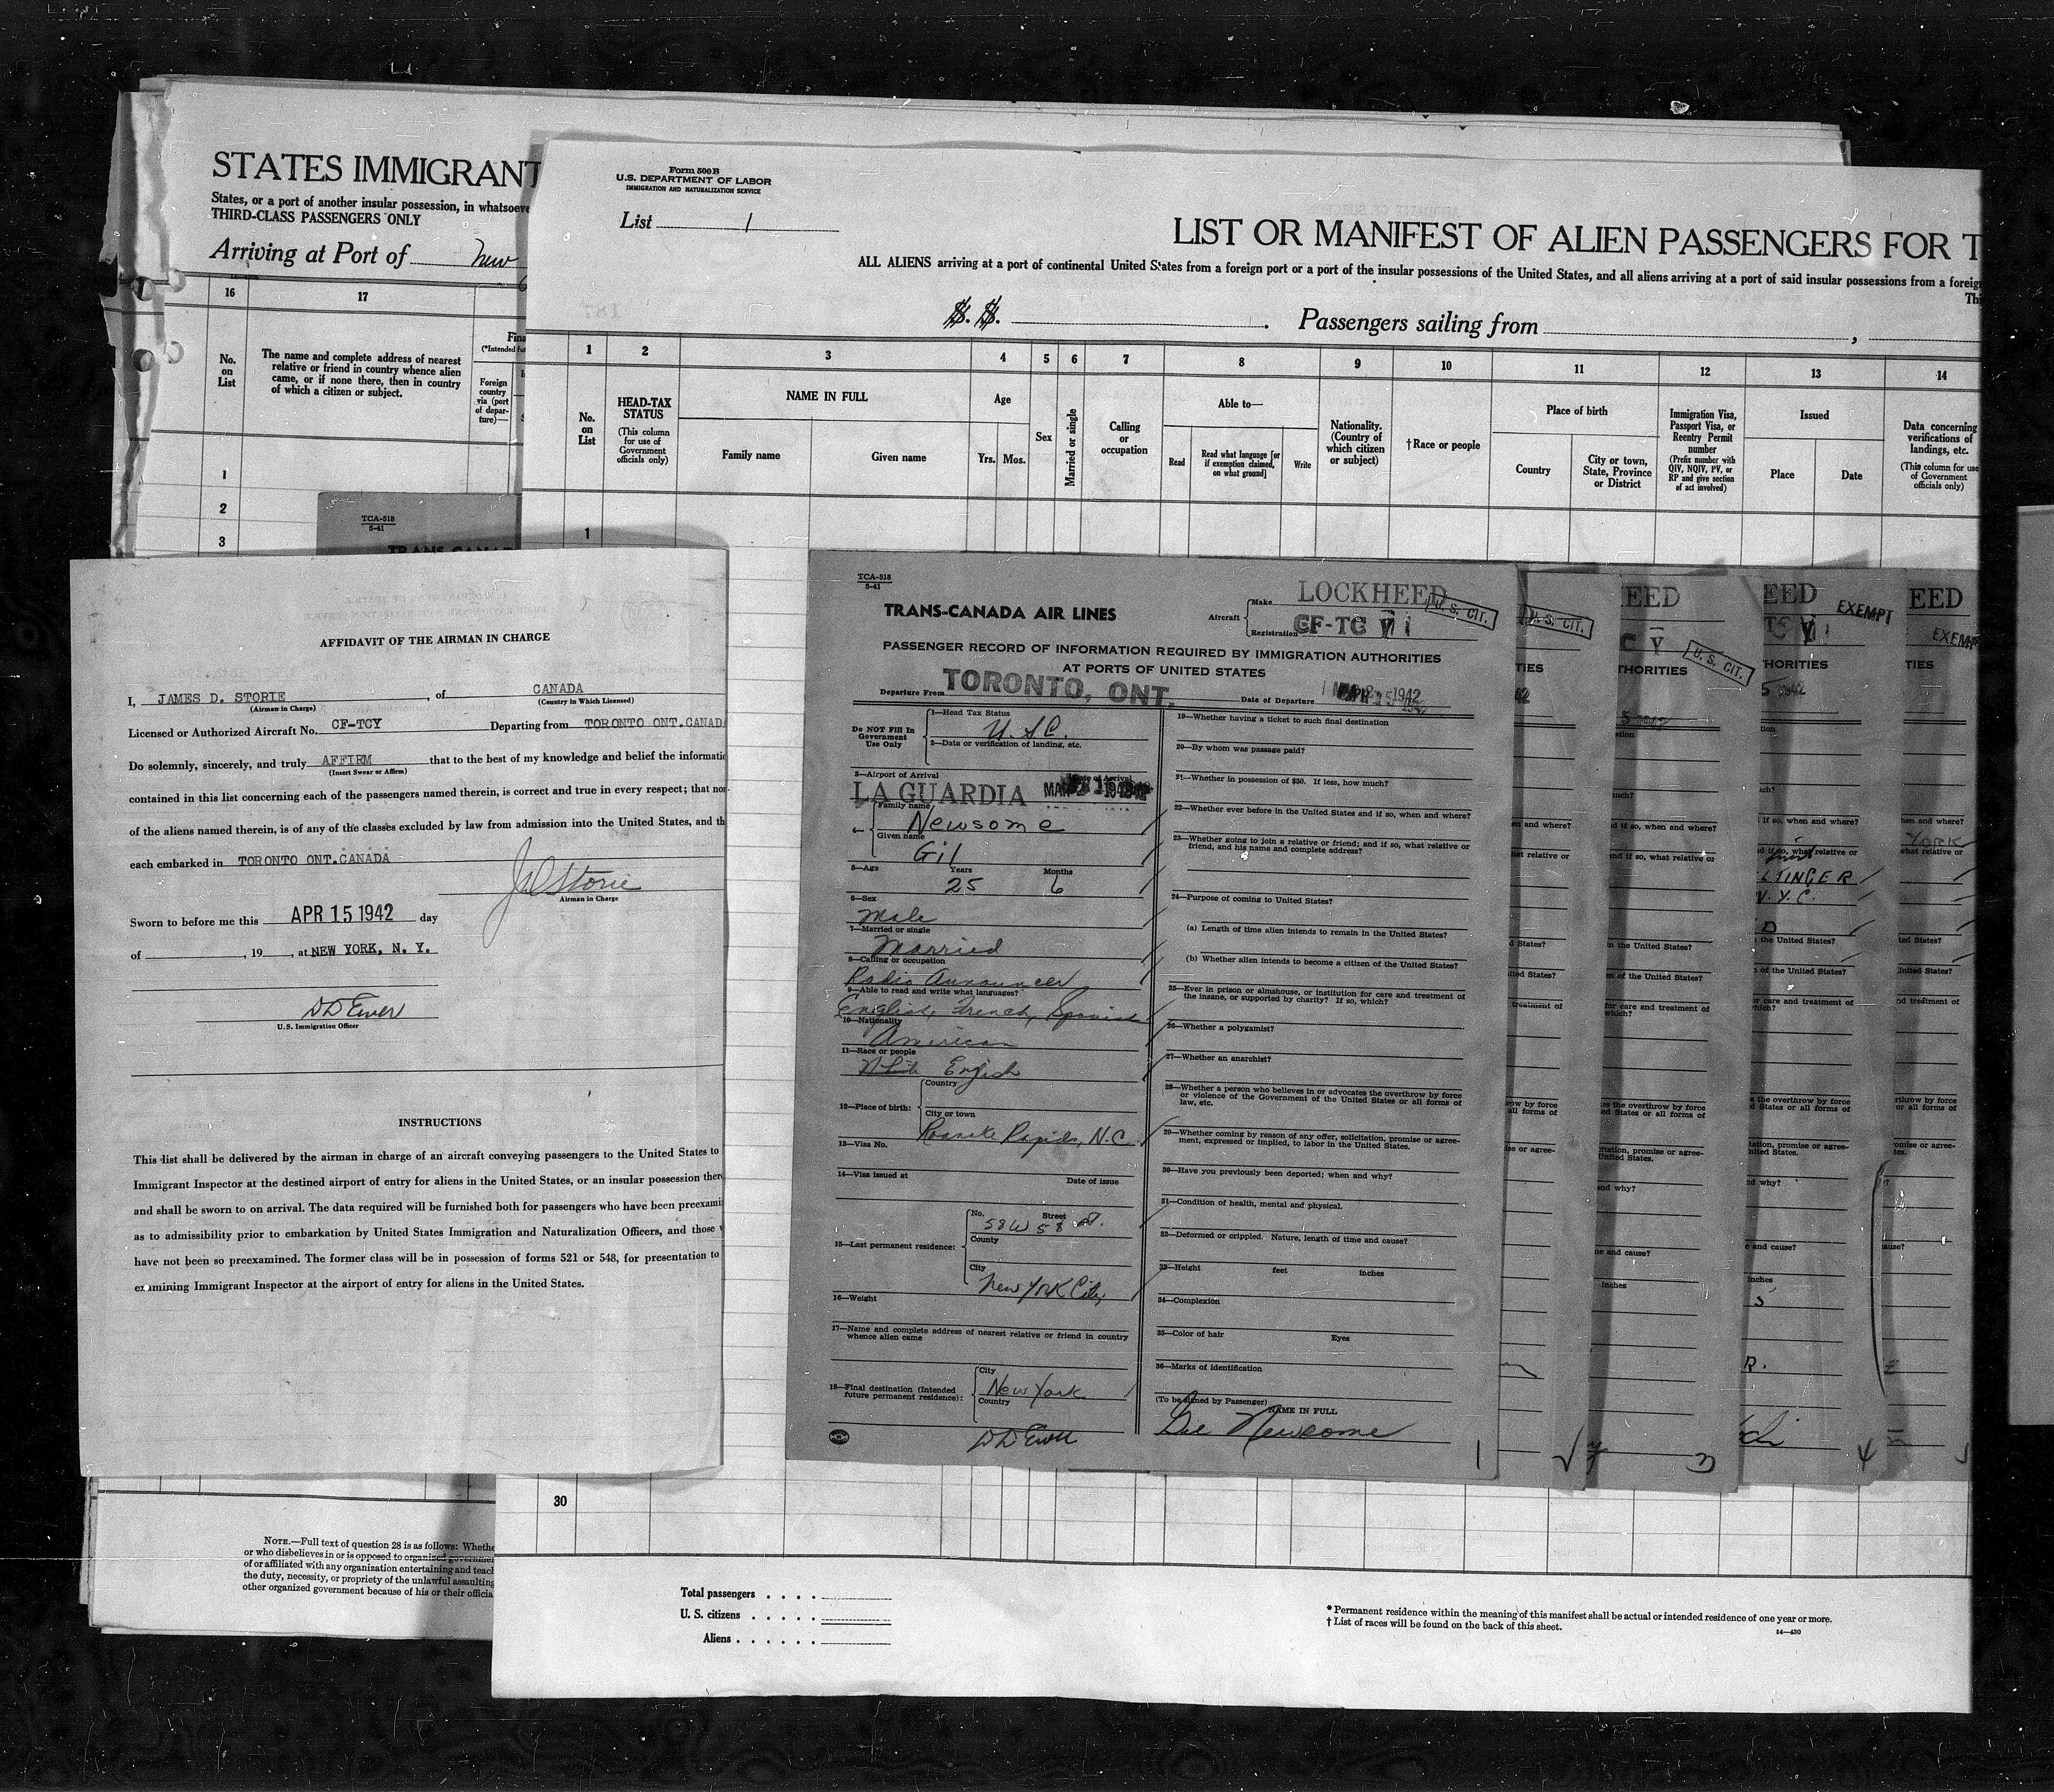 STATES IMMIGRANT
States, or a port of another insular possession, in whatsoeve
THIRD-CLASS PASSENGERS ONLY
Arriving at Port of New
16
17
No.
on
List
The name and complete address of nearest
relative or friend in country whence alien
came, or if none there, then in country
of which a citizen or subject.
Fina
(*Intended fut
Foreign
country
via (port
of depar-
ture)—
1
2
3
TCA-518
5-41
Form 500 B
U.S. DEPARTMENT OF LABOR
IMMIGRATION AND NATURALIZATION SERVICE
List 1
LIST OR MANIFEST OF ALIEN PASSENGERS FOR T
ALL ALIENS arriving at a port of continental United States from a foreign port or a port of the insular possessions of the United States, and all aliens arriving at a port of said insular possessions from a foreig
Thi
S. S. . Passengers sailing from ,
1 2 3 4 5 6 7 8 9 10 11 12 13 14
No.
on
List
HEAD-TAX
STATUS
(This column
for use of
Government
officials only)
NAME IN FULL
Family name Given name
Age
Yrs. Mos.
Sex
Married or single
Calling
or
occupation
Able to—
Read
Read what language [or
if exemption claimed,
on what ground]
Write
Nationality.
(Country of
which citizen
or subject)
†Race or people
Place of birth
Country
City or town,
State, Province
or District
Immigration Visa,
Passport Visa, or
Reentry Permit
number
(Prefix number with
QIV, NQIV, PV, or
RP and give section
of act involved)
Issued
Place Date
Data concerning
verifications of
landings, etc.
(This column for use
of Government
officials only)
1
AFFIDAVIT OF THE AIRMAN IN CHARGE
I, JAMES D. STORIE , of CANADA
(Airman in Charge) (Country in Which Licensed)
Licensed or Authorized Aircraft No. CF-TCY Departing from TORONTO ONT.CANAD
Do solemnly, sincerely, and truly AFFIRM that to the best of my knowledge and belief the informatio
(Insert Swear or Affirm)
contained in this list concerning each of the passengers named therein, is correct and true in every respect; that no
of the aliens named therein, is of any of the classes excluded by law from admission into the United States, and th
each embarked in TORONTO ONT.CANADA
JDStorie
Airman in Charge
Sworn to before me this APR 15 1942 day
of , 19 , at NEW YORK, N. Y.
DDEwer
U.S. Immigration Officer
INSTRUCTIONS
This list shall be delivered by the airman in charge of an aircraft conveying passengers to the United States to
Immigrant Inspector at the destined airport of entry for aliens in the United States, or an insular possession ther
and shall be sworn to on arrival. The data required will be furnished both for passengers who have been preexami
as to admissibility prior to embarkation by United States Immigration and Naturalization Officers, and those
have not been so preexamined. The former class will be in possession of forms 521 or 548, for presentation to
examining Immigrant Inspector at the airport of entry for aliens in the United States.
TCA-518
5-41
TRANS-CANADA AIR LINES
Aircraft
Make LOCKHEED
Registration CF-TC
U. S. CIT.
PASSENGER RECORD OF INFORMATION REQUIRED BY IMMIGRATION AUTHORITIES
AT PORTS OF UNITED STATES
Departure From TORONTO, ONT. Date of Departure 1942
Do NOT Fill In
Government
Use Only
1—Head Tax Status
U.S.C.
2—Data or verification of landing, etc.
3—Airport of Arrival Date of Arrival
LA GUARDIA
4—
Family name
Newsome
Given name
Gil
5—Age Years Months
25 6
6—Sex
Male
7—Married or single
Married
8—Calling or occupation
Radio Announcer
9—Able to read and write what languages?
English, French, Spanish
10—Nationality
American
11—Race or people
White English
12—Place of birth:
Country
City or town
Roanoke Rapids, N.C.
13—Visa No.
14—Visa issued at Date of issue
15—Last permanent residence:
No. Street
58 W 58 St.
County
City
New York City
16—Weight
17—Name and complete address of nearest relative or friend in country
whence alien came
18—Final destination (Intended
future permanent residence):
City
New York
Country
DDEwer
19—Whether having a ticket to such final destination
20—By whom was passage paid?
21—Whether in possession of $50. If less, how much?
22—Whether ever before in the United States and if so, when and where?
23—Whether going to join a relative or friend; and if so, what relative or
friend, and his name and complete address?
24—Purpose of coming to United States?
(a) Length of time alien intends to remain in the United States?
(b) Whether alien intends to become a citizen of the United States?
25—Ever in prison or almshouse, or institution for care and treatment of
the insane, or supported by charity? If so, which?
26—Whether a polygamist?
27—Whether an anarchist?
28—Whether a person who believes in or advocates the overthrow by force
or violence of the Government of the United States or all forms of
law, etc.
29—Whether coming by reason of any offer, solicitation, promise or agree-
ment, expressed or implied, to labor in the United States.
30—Have you previously been deported; when and why?
31—Condition of health, mental and physical.
32—Deformed or crippled. Nature, length of time and cause?
33—Height feet inches
34—Complexion
35—Color of hair Eyes
36—Marks of identification
(To be signed by Passenger) NAME IN FULL
Gil Newsome
1
U. S. CIT.
EED
U. S. CIT.
THORITIES
3
EED
EXEMPT
HORITIES
LTINGER
N.Y.C.
4
EED
EXEMP
TIES
YORK
30
NOTE.—Full text of question 28 is as follows: Whethe
or who disbelieves in or is opposed to organized governmen
of or affiliated with any organization entertaining and teach
the duty, necessity, or propriety of the unlawful assaulting
other organized government because of his or their officia
Total passengers . . . .
U. S. citizens . . . . .
Aliens . . . . . .
* Permanent residence within the meaning of this manifest shall be actual or intended residence of one year or more.
† List of races will be found on the back of this sheet.
14—430